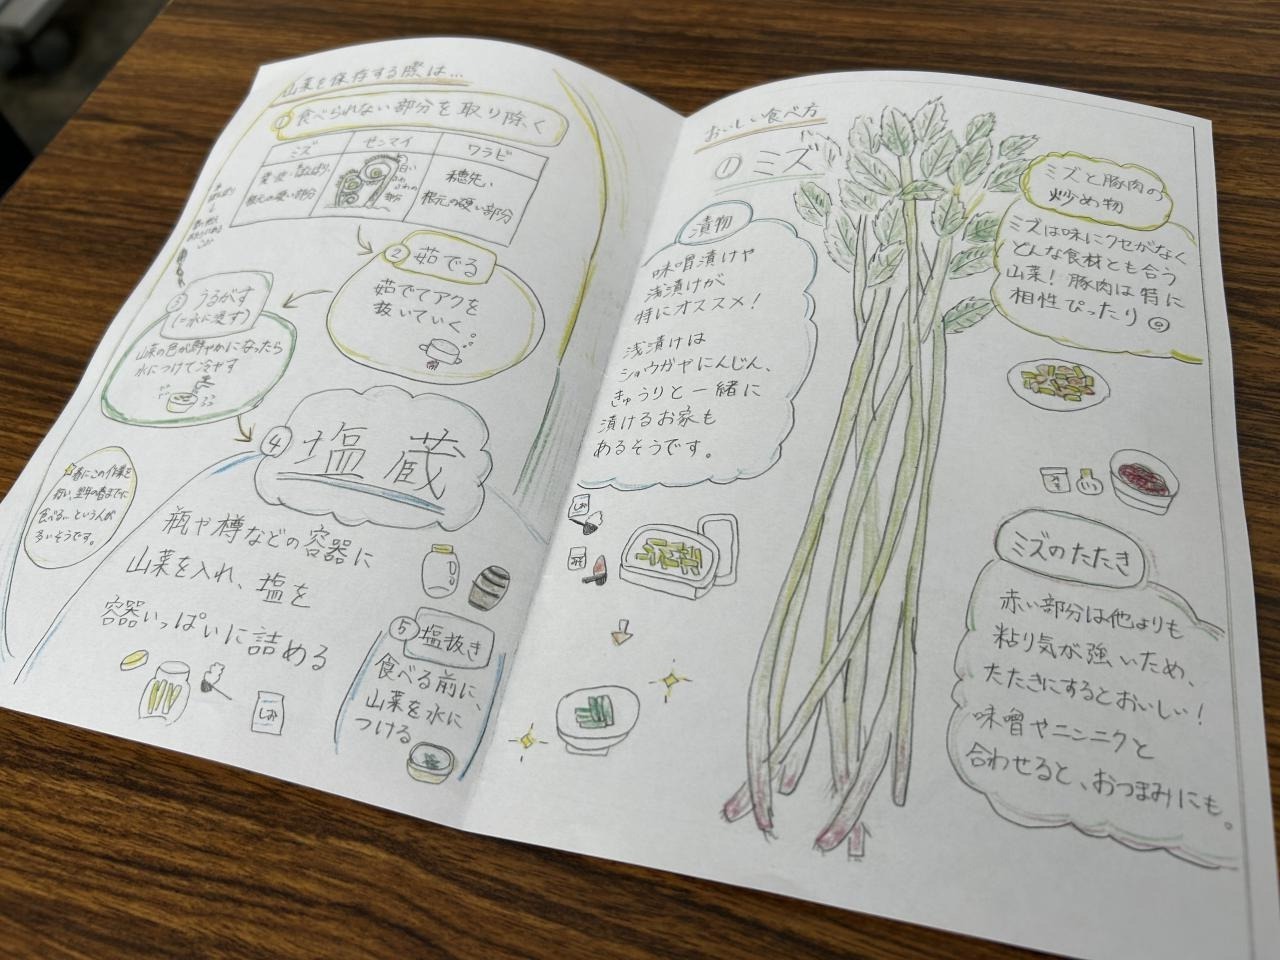 山菜を保存する際は…
① 食べられない部分を取り除く
ミズ
ゼンマイ
ワラビ
葉、皮、
根元の硬い部分
白い
部分
穂先、
根元の硬い部分
② 茹でる
茹でてアクを
抜いていく。
③ うるかす
(=水に浸す)
山菜の色が鮮やかになったら
水につけて冷やす
④ 塩蔵
瓶や樽などの容器に
山菜を入れ、塩を
容器いっぱいに詰める
春にこの作業を
行い、翌年の春までに
食べる…という人が
多いそうです。
しお
⑤ 塩抜き
食べる前に、
山菜を水に
つける
おいしい食べ方
① ミズ
漬物
味噌漬けや
浅漬けが
特にオススメ!
浅漬けは
ショウガやにんじん、
きゅうりと一緒に
漬けるお家も
あるそうです。
しお
ミズと豚肉の
炒め物
ミズは味にクセがなく
どんな食材とも合う
山菜! 豚肉は特に
相性ぴったり
ミズのたたき
赤い部分は他よりも
粘り気が強いため、
たたきにするとおいしい!
味噌やニンニクと
合わせると、おつまみにも。